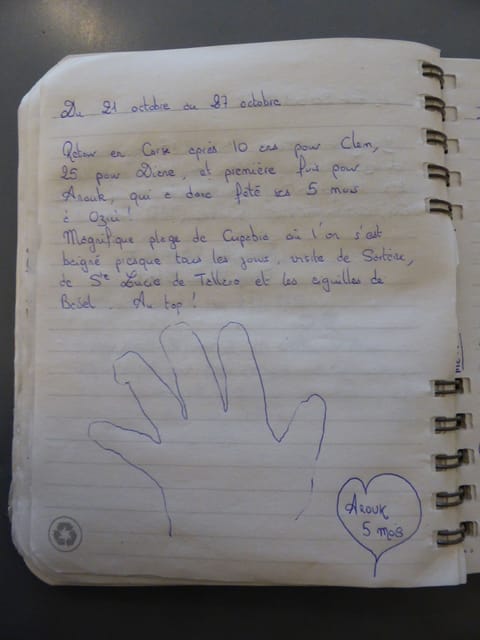 Du 21 octobre au 27 octobre
Retour en Corse après 10 ans pour Clem,
25 pour Diane, et première fois pour
Anouk, qui a donc fêté ses 5 mois
à Ozini!
Magnifique plage de Cupabia où l'on s'est
baigné presque tous les jours, visite de Sartène,
de Ste Lucie de Tallano et les aiguilles de
Bavel. Au top!
ANOUK
5 mois